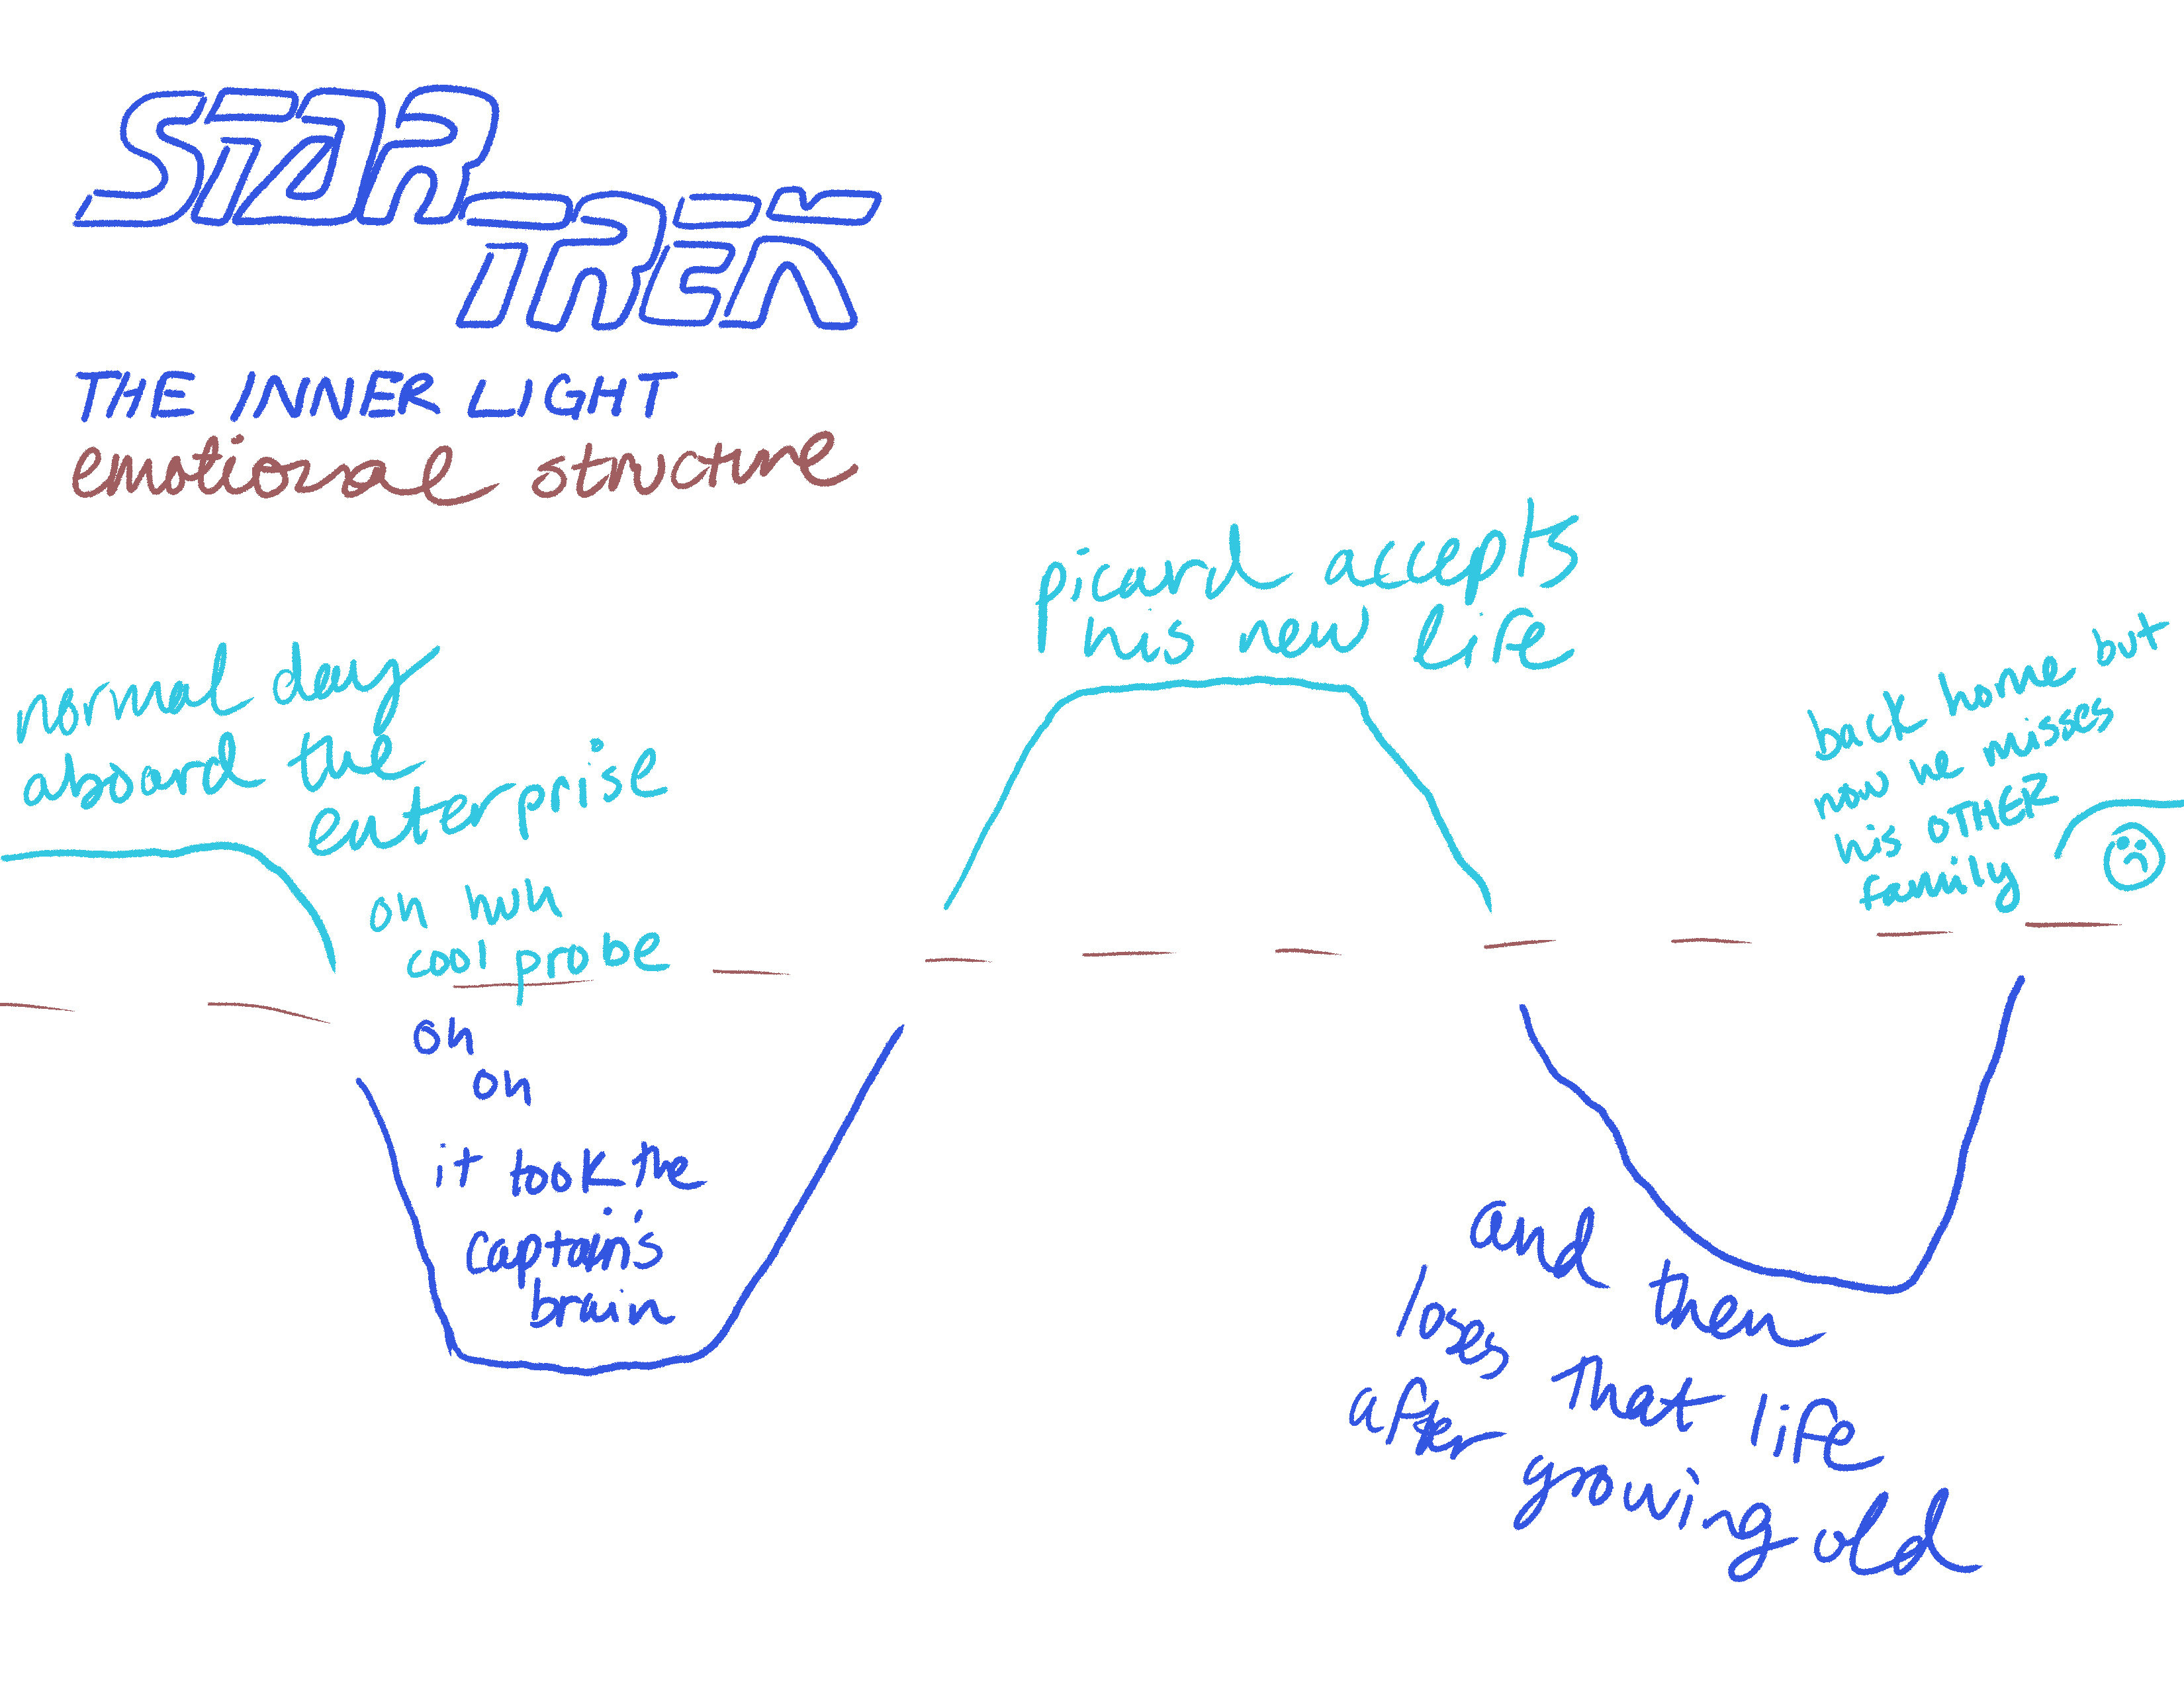 STAR
TREK
THE INNER LIGHT
emotional structure
normal day
aboard the
enterprise
oh huh
cool probe
oh
oh
it took the
captain's
brain
picard accepts
his new life
and then
loses that life
after growing old
back home but
now he misses
his OTHER
family